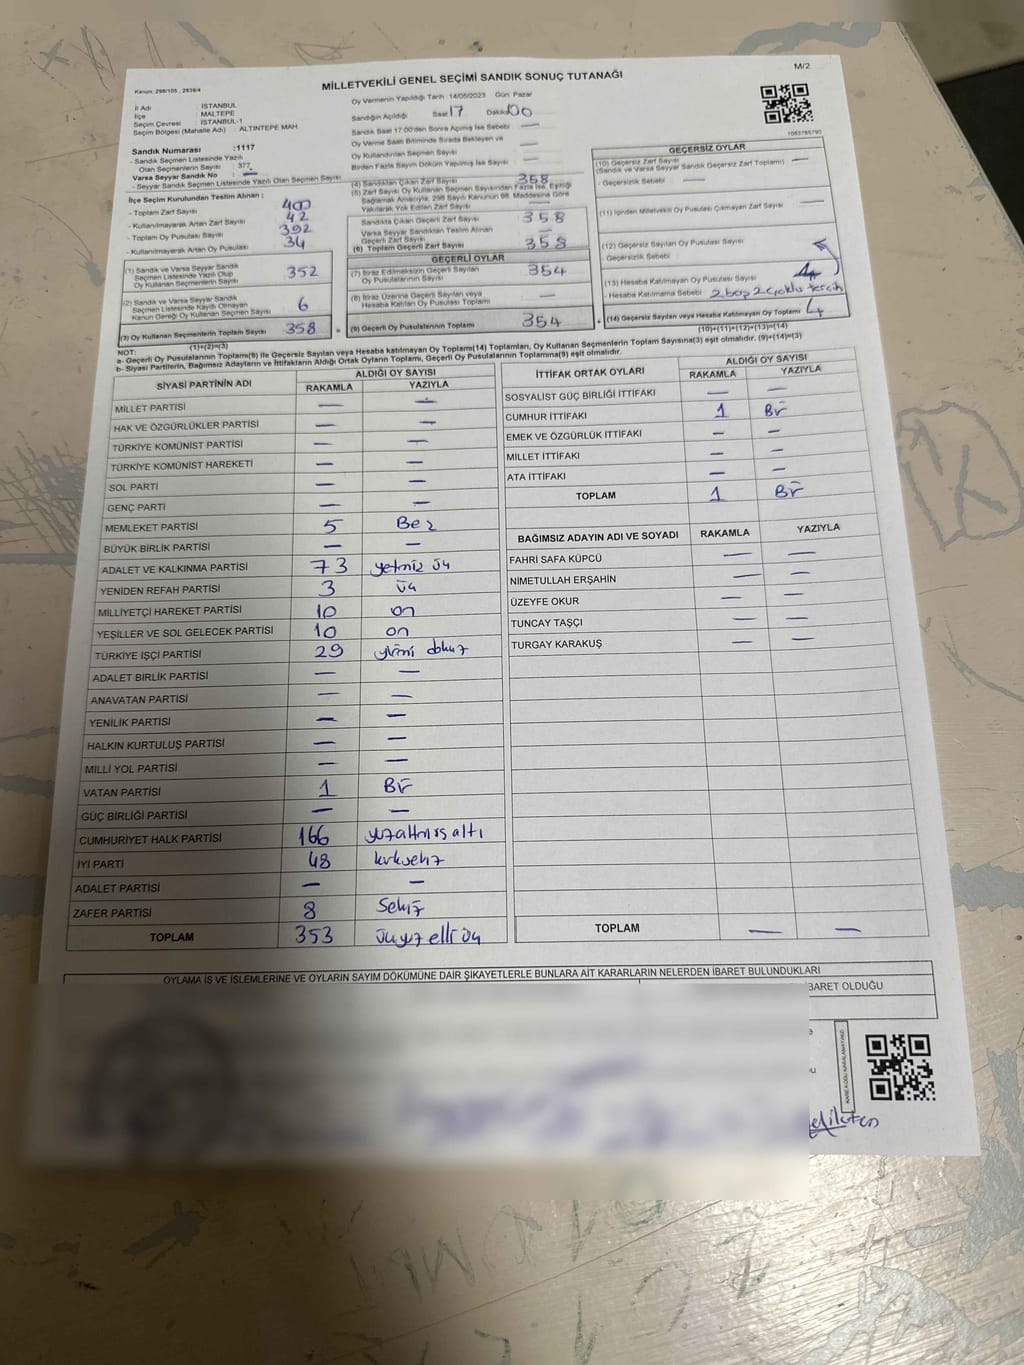 M/2
MİLLETVEKİLİ GENEL SEÇİMİ SANDIK SONUÇ TUTANAĞI
Kanun: 298/105 , 2839/4
İl Adı : İSTANBUL
İlçe : MALTEPE
Seçim Çevresi : İSTANBUL-1
Seçim Bölgesi (Mahalle Adı) : ALTINTEPE MAH.
Oy Vermenin Yapıldığı Tarih 14/05/2023 Gün Pazar
Sandığın Açıldığı Saat 17 Dakika 00
Sandık Saat 17:00'den Sonra Açılmış İse Sebebi —
Oy Verme Saati Bitiminde Sırada Bekleyen ve
Oy Kullandırılan Seçmen Sayısı —
Birden Fazla Sayım Döküm Yapılmış İse Sayısı —
1083785790
Sandık Numarası :1117
- Sandık Seçmen Listesinde Yazılı
Olan Seçmenlerin Sayısı : 377
Varsa Seyyar Sandık No : —
- Seyyar Sandık Seçmen Listesinde Yazılı Olan Seçmen Sayısı :
İlçe Seçim Kurulundan Teslim Alınan ;
- Toplam Zarf Sayısı 400
- Kullanılmayarak Artan Zarf Sayısı 42
- Toplam Oy Pusulası Sayısı 392
- Kullanılmayarak Artan Oy Pusulası 34
(1) Sandık ve Varsa Seyyar Sandık
Seçmen Listesinde Yazılı Olup
Oy Kullanan Seçmenlerin Sayısı 352
(2) Sandık ve Varsa Seyyar Sandık
Seçmen Listesinde Kayıtlı Olmayan
Kanun Gereği Oy Kullanan Seçmen Sayısı 6
(3) Oy Kullanan Seçmenlerin Toplam Sayısı 358
(1)+(2)=(3)
(4) Sandıktan Çıkan Zarf Sayısı 358
(5) Zarf Sayısı Oy Kullanan Seçmen Sayısından Fazla İse, Eşitliği
Sağlamak Amacıyla, 298 Sayılı Kanunun 98. Maddesine Göre
Yakılarak Yok Edilen Zarf Sayısı —
Sandıkta Çıkan Geçerli Zarf Sayısı 358
Varsa Seyyar Sandıktan Teslim Alınan
Geçerli Zarf Sayısı —
(6) Toplam Geçerli Zarf Sayısı 358
GEÇERLİ OYLAR
(7) İtiraz Edilmeksizin Geçerli Sayılan
Oy Pusulası Sayısı 354
(8) İtiraz Üzerine Geçerli Sayılan veya
Hesaba Katılan Oy Pusulası Toplamı —
= (9) Geçerli Oy Pusulalarının Toplamı 354
GEÇERSİZ OYLAR
(10) Geçersiz Zarf Sayısı
(Sandık ve Varsa Seyyar Sandık Geçersiz Zarf Toplamı) —
- Geçersizlik Sebebi : —
(11) İçinden Milletvekili Oy Pusulası Çıkmayan Zarf Sayısı —
(12) Geçersiz Sayılan Oy Pusulası Sayısı
- Geçersizlik Sebebi :
(13) Hesaba Katılmayan Oy Pusulası Sayısı 4
- Hesaba Katılmama Sebebi : 2 boş 2 çoklu tercih
+ (14) Geçersiz Sayılan veya Hesaba Katılmayan Oy Toplamı 4
(10)+(11)+(12)+(13)=(14)
NOT:
a- Geçerli Oy Pusulalarının Toplamı(9) ile Geçersiz Sayılan veya Hesaba katılmayan Oy Toplamı(14) Toplamları, Oy Kullanan Seçmenlerin Toplam Sayısına(3) eşit olmalıdır. (9)+(14)=(3)
b- Siyasi Partilerin, Bağımsız Adayların ve İttifakların Aldığı Ortak Oyların Toplamı, Geçerli Oy Pusulalarının Toplamına(9) eşit olmalıdır.
SİYASİ PARTİNİN ADI ALDIĞI OY SAYISI
RAKAMLA YAZIYLA
MİLLET PARTİSİ — —
HAK VE ÖZGÜRLÜKLER PARTİSİ — —
TÜRKİYE KOMÜNİST PARTİSİ — —
TÜRKİYE KOMÜNİST HAREKETİ — —
SOL PARTİ — —
GENÇ PARTİ — —
MEMLEKET PARTİSİ 5 Beş
BÜYÜK BİRLİK PARTİSİ — —
ADALET VE KALKINMA PARTİSİ 73 yetmiş üç
YENİDEN REFAH PARTİSİ 3 üç
MİLLİYETÇİ HAREKET PARTİSİ 10 on
YEŞİLLER VE SOL GELECEK PARTİSİ 10 on
TÜRKİYE İŞÇİ PARTİSİ 29 yirmi dokuz
ADALET BİRLİK PARTİSİ — —
ANAVATAN PARTİSİ — —
YENİLİK PARTİSİ — —
HALKIN KURTULUŞ PARTİSİ — —
MİLLİ YOL PARTİSİ — —
VATAN PARTİSİ 1 Bir
GÜÇ BİRLİĞİ PARTİSİ — —
CUMHURİYET HALK PARTİSİ 166 yüzaltmış altı
İYİ PARTİ 48 kırksekiz
ADALET PARTİSİ — —
ZAFER PARTİSİ 8 Sekiz
TOPLAM 353 üçyüz elli üç
İTTİFAK ORTAK OYLARI ALDIĞI OY SAYISI
RAKAMLA YAZIYLA
SOSYALİST GÜÇ BİRLİĞİ İTTİFAKI — —
CUMHUR İTTİFAKI 1 Bir
EMEK VE ÖZGÜRLÜK İTTİFAKI — —
MİLLET İTTİFAKI — —
ATA İTTİFAKI — —
TOPLAM 1 Bir
BAĞIMSIZ ADAYIN ADI VE SOYADI RAKAMLA YAZIYLA
FAHRİ SAFA KÜPCÜ — —
NİMETULLAH ERŞAHİN — —
ÜZEYFE OKUR — —
TUNCAY TAŞÇI — —
TURGAY KARAKUŞ — —
TOPLAM — —
OYLAMA İŞ VE İŞLEMLERİNE VE OYLARIN SAYIM DÖKÜMÜNE DAİR ŞİKAYETLERLE BUNLARA AİT KARARLARIN NELERDEN İBARET BULUNDUKLARI
BARET OLDUĞU
KARE KODU KARALAMAYINIZ!